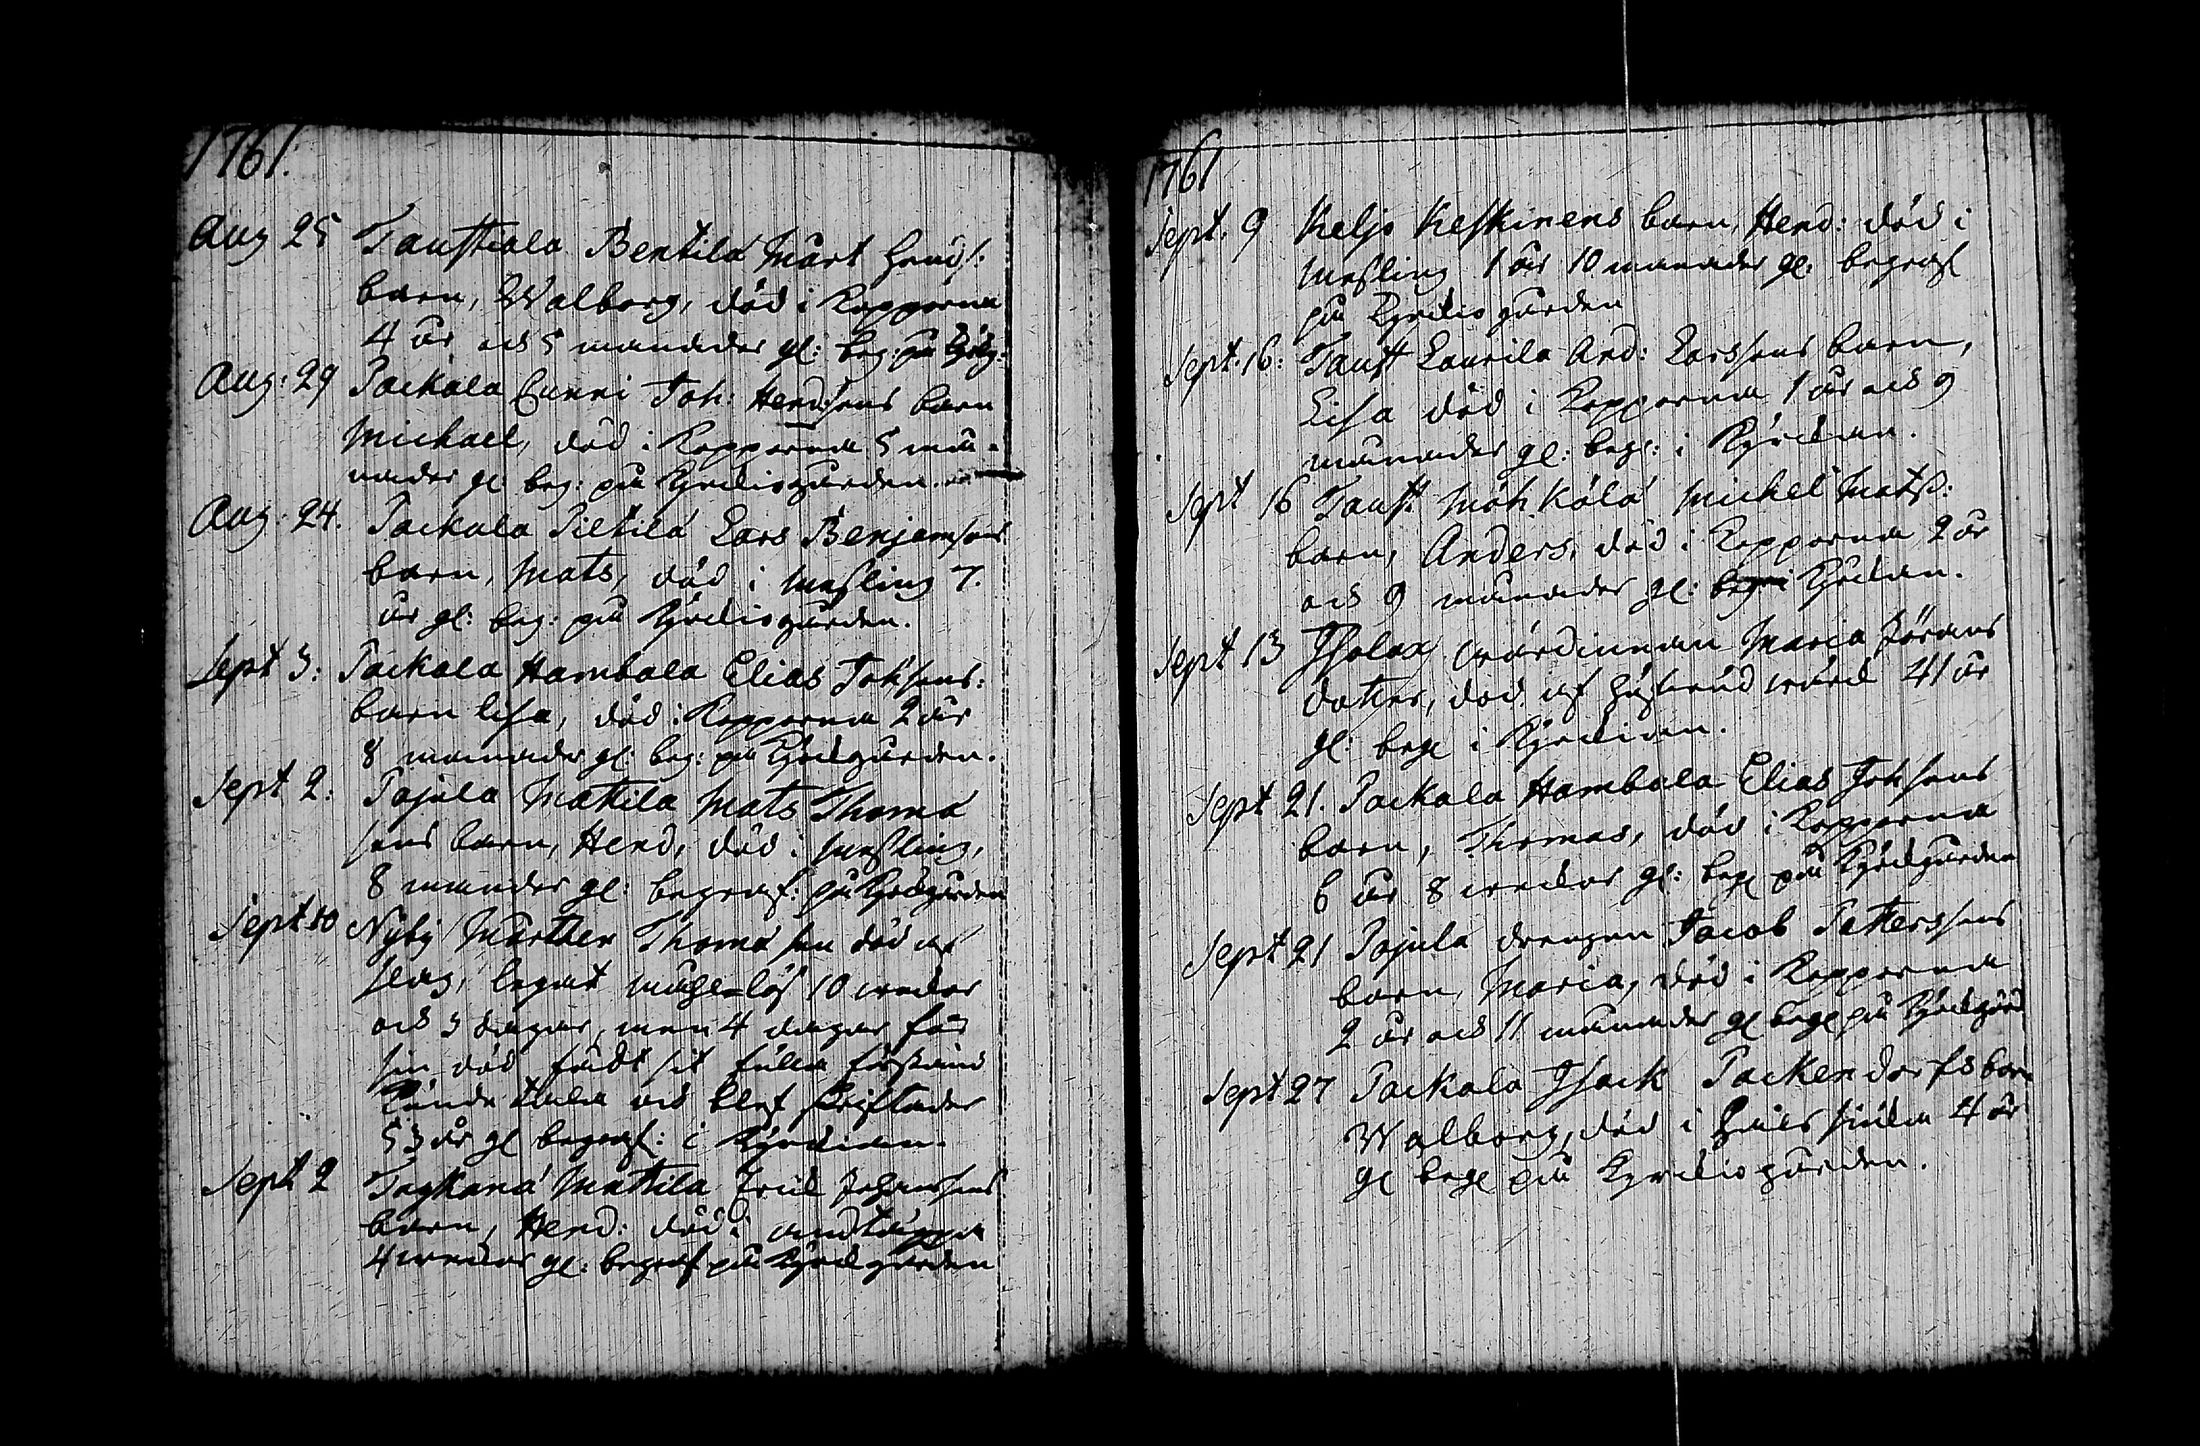 1761.
Aug 25 Taustkala Bentilä Märt Hend/:
barn, Walborg, död i Kopporna
4 år och 5 månader gl: beg: på Kyrkog:
Aug: 29 Packala Cunni Joh: Hend:sons barn
Michael, död i Kopporna 5 må-
nader gl: beg: på Kyrkiogården.
Aug: 24. Packala Piltilä Lars Benjamsons
barn, Mats, död i Messling 7.
år gl: beg: på Kyrkiogården.
Sept 3: Packala Hambola Elias Johsons:
barn Lisa, död i Kopporna 2 år
8 månader gl: beg: på Kyrkgården.
Sept 2: Pajula Mattila Mats Thomä
sons barn, Hend, död i Messling,
8 månader gl: begraf: på Kyrkgården
Sept 10 Nyby Mårthen Thomä son död af
slag, legat 10 weckor
och 3 dagar, men 4 dagar för
sin död fådt sit fulla förstånd
kunde tala och blef skriftader
53 år gl begraf: i Kyrckian.
Sept 2 Mattila Erick Johanssons
barn, Hend: död i andtäppa
4 weckor gl: begraf på Kyrckgården
1761
Sept. 9 Keljo Keskinens barn, Hend: död i
Messling 1 år 10 månader gl: begraf
på Kyrkiogården
Sept. 16: Taust Laurila And: Larssons barn,
Lisa död i Kopporna 1 år och 9
månader gl: begr: i Kyrckian.
Sept 16 Taust Mäh Kälä Michel Matss:
barn, Anders, död i Kopporna 2 år
och 9 månader gl: beg i Kyrckan.
Sept 13 Isolax wärdinnan Maria Jörans
dotter, död af wärck 41 år
gl: begr i Kyrckian.
Sept 21. Packala Hambola Elias Johsons
barn, Thomas, död i Kopporna
6 år 8 weckor gl: begr på Kyrckgården
Sept 21 Pajula drengen Jacob Pettersons
barn, Maria, död i Kopporna
2 år och 11 månader gl begr på Kyrckgård
Sept 27 Packala Isack Packendorfs barn
Walborg, död i siukn 4 år
gl begr på Kyrckiogården.